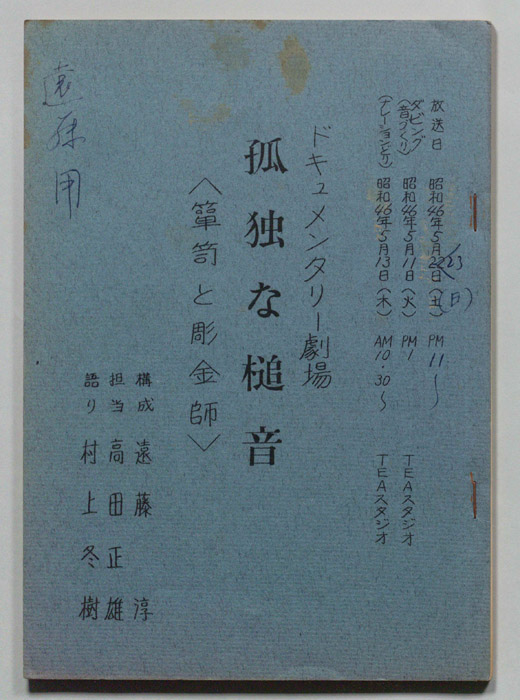 放送日 昭和46年5月22日(土) PM 11〜
23 (日)
ダビング(音づくり) 昭和46年5月11日(火) PM 1 TEAスタジオ
(ナレーションとり) 昭和46年5月13日(木) AM 10・30〜 TEAスタジオ
ドキュメンタリー劇場
孤独な槌音
〈箪笥と彫金師〉
構成 遠藤 淳
担当 高田正雄
語り 村上冬樹
遠藤用